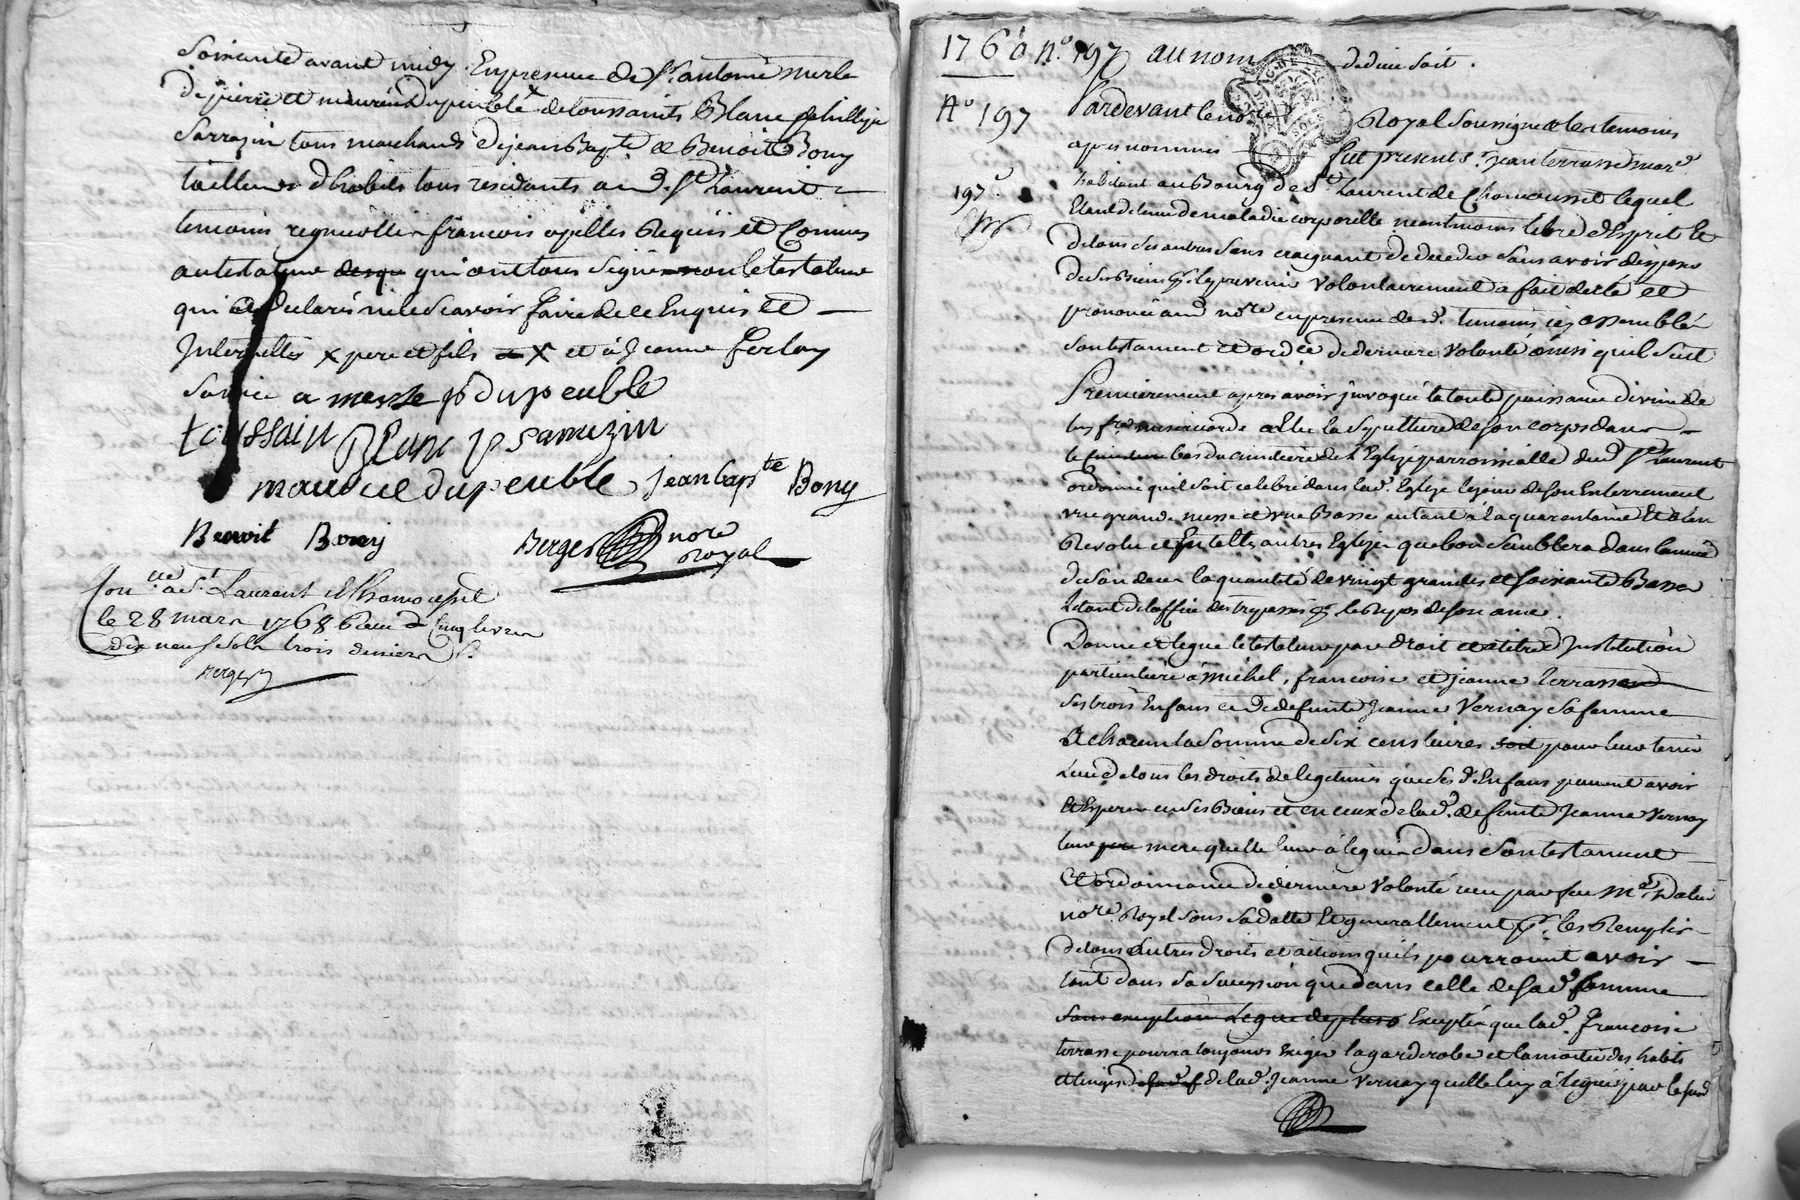 Soixante avant midy En presence de Sr antoine merle
de pierre et maurice dupeuble x de toussaints Blanc phillipe
Sarrazin tous marchands de jean Bapte & Benoit Bony
tailleurs d'habits tous residants aud. St Laurent
temoins françois apelles Requis et Connus
au testateur qui ont tous signé non le testateur
qui a declaré ne le scavoir faire de ce Enquis et
Interpellé x pere et fils x et à jeanne ferlay
a merle jp dupeuble
toussain Blanc p saruzin
mauricce dupeuble jean bapte Bony
Benoit Bony
Berger nore
Royal
Con.lle a St Laurent de Chamousset
le 28 mars 1768 Receu Cinq livres
dix neuf sols trois deniers
Berger
1760 No. 197 au nom de dieu soit.
No 197
197
Pardevant le nore Royal Soussigné et les temoins
apres nommes fut present Sr jean terrasse mard
habitant au Bourg de St Laurent de Chamousset lequel
Etant detenu de maladie corporelle neantmoins libre d'Esprit Et
de tous ses autres sens craignant de deceder sans avoir disposé
de ses Biens pr. le prevenir volontairement a fait dicté et
prononcé aud nore en presence desd. temoins icy assemblés
son testament et ordce de derniere volonté ainsi quil suit
Premierement apres avoir invoqué la toute puissance divine de
misericorde a Elu la sepulture de son corps dans
le cimetiere de l'Eglise parroissialle dud St Laurent
ordonne quil soit celebré dans lad. Eglise le jour de son Enterrement
une grande messe et une Basse autant à la quarantaine Et à l'an
Revolu et En telles autres Eglizes que bon semblera dans l'année
de son deces la quantité de vingt grandes et soixante Basses
Letout de l'office des trepassés pr le Repos de son ame.
Donne et legue le testateur par droit et a titre d'Institution
particuliere à michel, francoise et jeanne terrasse
ses trois Enfans et de defunte Jeanne Vernay sa femme
A chacun la somme de six cens livres pour leur tenir
Lieu de tous les droits de legitimes que ses d. Enfans peuvent avoir
Et Esperer en ses Biens et en ceux de lad. defunte Jeanne Vernay
leur mere quelle leur à legués dans son testament
Et ordonnance de derniere volonté receu par feu Me
nore Royal sous sa datte Et generallement pr. les Remplir
de tous autres droits et actions quils pourroient avoir
tant dans sa succession que dans celle de sad. femme
sans exception Legue de plus Excepté que lad. françoise
terrasse pourra toujours Exiger la garderobe et la moitié des habits
et linges de lad. Jeanne Vernay quelle luy à legués par le susd